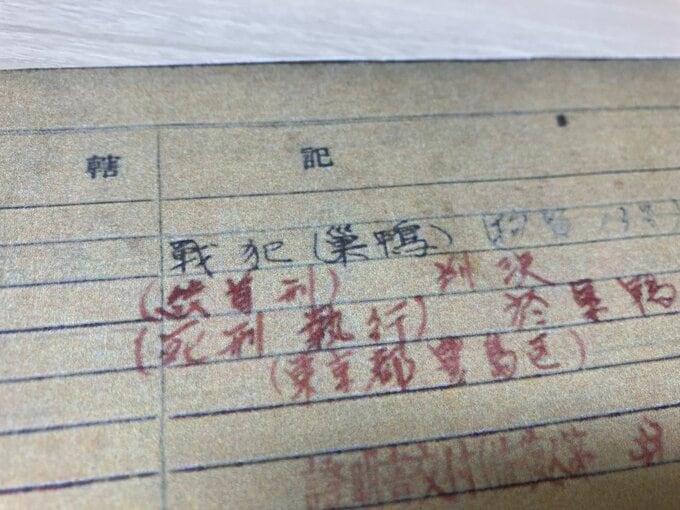 轄 記
戦犯(巣鴨)
(絞首刑) 判決
(死刑執行) 於巣鴨
(東京都豊島区)